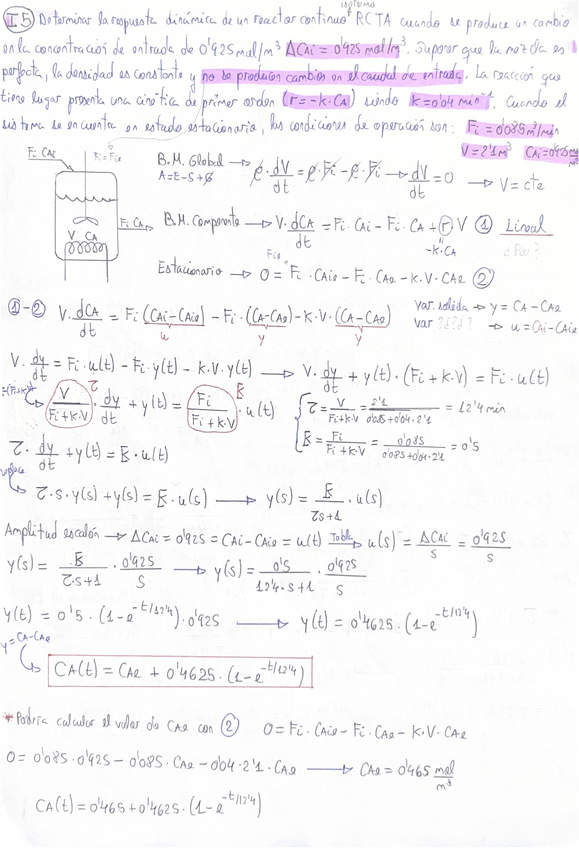 I.5 Determinar la respuesta dinámica de un reactor continuo RCTA cuando se produce un cambio
en la concentración de entrada de 0'925 mol/m³ ΔCAi = 0'925 mol/m³. Suponer que la mezcla es
perfecta, la densidad es constante y no se producen cambios en el caudal de entrada. La reacción que
tiene lugar presenta una cinética de primer orden (r = -k·CA) siendo k = 0'04 min⁻¹. Cuando el
sistema se encuentra en estado estacionario, las condiciones de operación son: Fi = 0'085 m³/min
V = 2'1 m³ CAi = 0'925 mol/m³
Fi CAi
Fi = Fie
B.M. Global → ρ·dV/dt = ρ·Fi - ρ·Fi → dV/dt = 0 → V = cte
A = E - S + G
V CA
Fi CA
B.M. Componente → V·dCA/dt = Fi·CAi - Fi·CA + r·V ① Lineal
-k·CA
Estacionario → 0 = Fi·CAie - Fi·CAe - k·V·CAe ②
Fie
①-② V·dCA/dt = Fi·(CAi - CAie) - Fi·(CA - CAe) - k·V·(CA - CAe)
u y y
Var. salida → y = CA - CAe
Var → u = CAi - CAie
V·dy/dt = Fi·u(t) - Fi·y(t) - k·V·y(t) → V·dy/dt + y(t)·(Fi + k·V) = Fi·u(t)
÷(Fi+k·V) V/(Fi+k·V)·dy/dt + y(t) = Fi/(Fi+k·V)·u(t)
τ K
τ = V/(Fi+k·V) = 2'1/(0'085+0'04·2'1) = 12'4 min
K = Fi/(Fi+k·V) = 0'085/(0'085+0'04·2'1) = 0'5
τ·dy/dt + y(t) = K·u(t)
τ·s·y(s) + y(s) = K·u(s) → y(s) = K/(τs+1)·u(s)
Amplitud escalón → ΔCAi = 0'925 = CAi - CAie = u(t) Tabla → u(s) = ΔCAi/s = 0'925/s
y(s) = K/(τ·s+1)·0'925/s → y(s) = 0'5/(12'4·s+1)·0'925/s
y(t) = 0'5·(1-e^(-t/12'4))·0'925 → y(t) = 0'4625·(1-e^(-t/12'4))
y = CA - CAe
CA(t) = CAe + 0'4625·(1-e^(-t/12'4))
* Podría calcular el valor de CAe con ② 0 = Fi·CAie - Fi·CAe - k·V·CAe
0 = 0'085·0'925 - 0'085·CAe - 0'04·2'1·CAe → CAe = 0'465 mol/m³
CA(t) = 0'465 + 0'4625·(1-e^(-t/12'4))